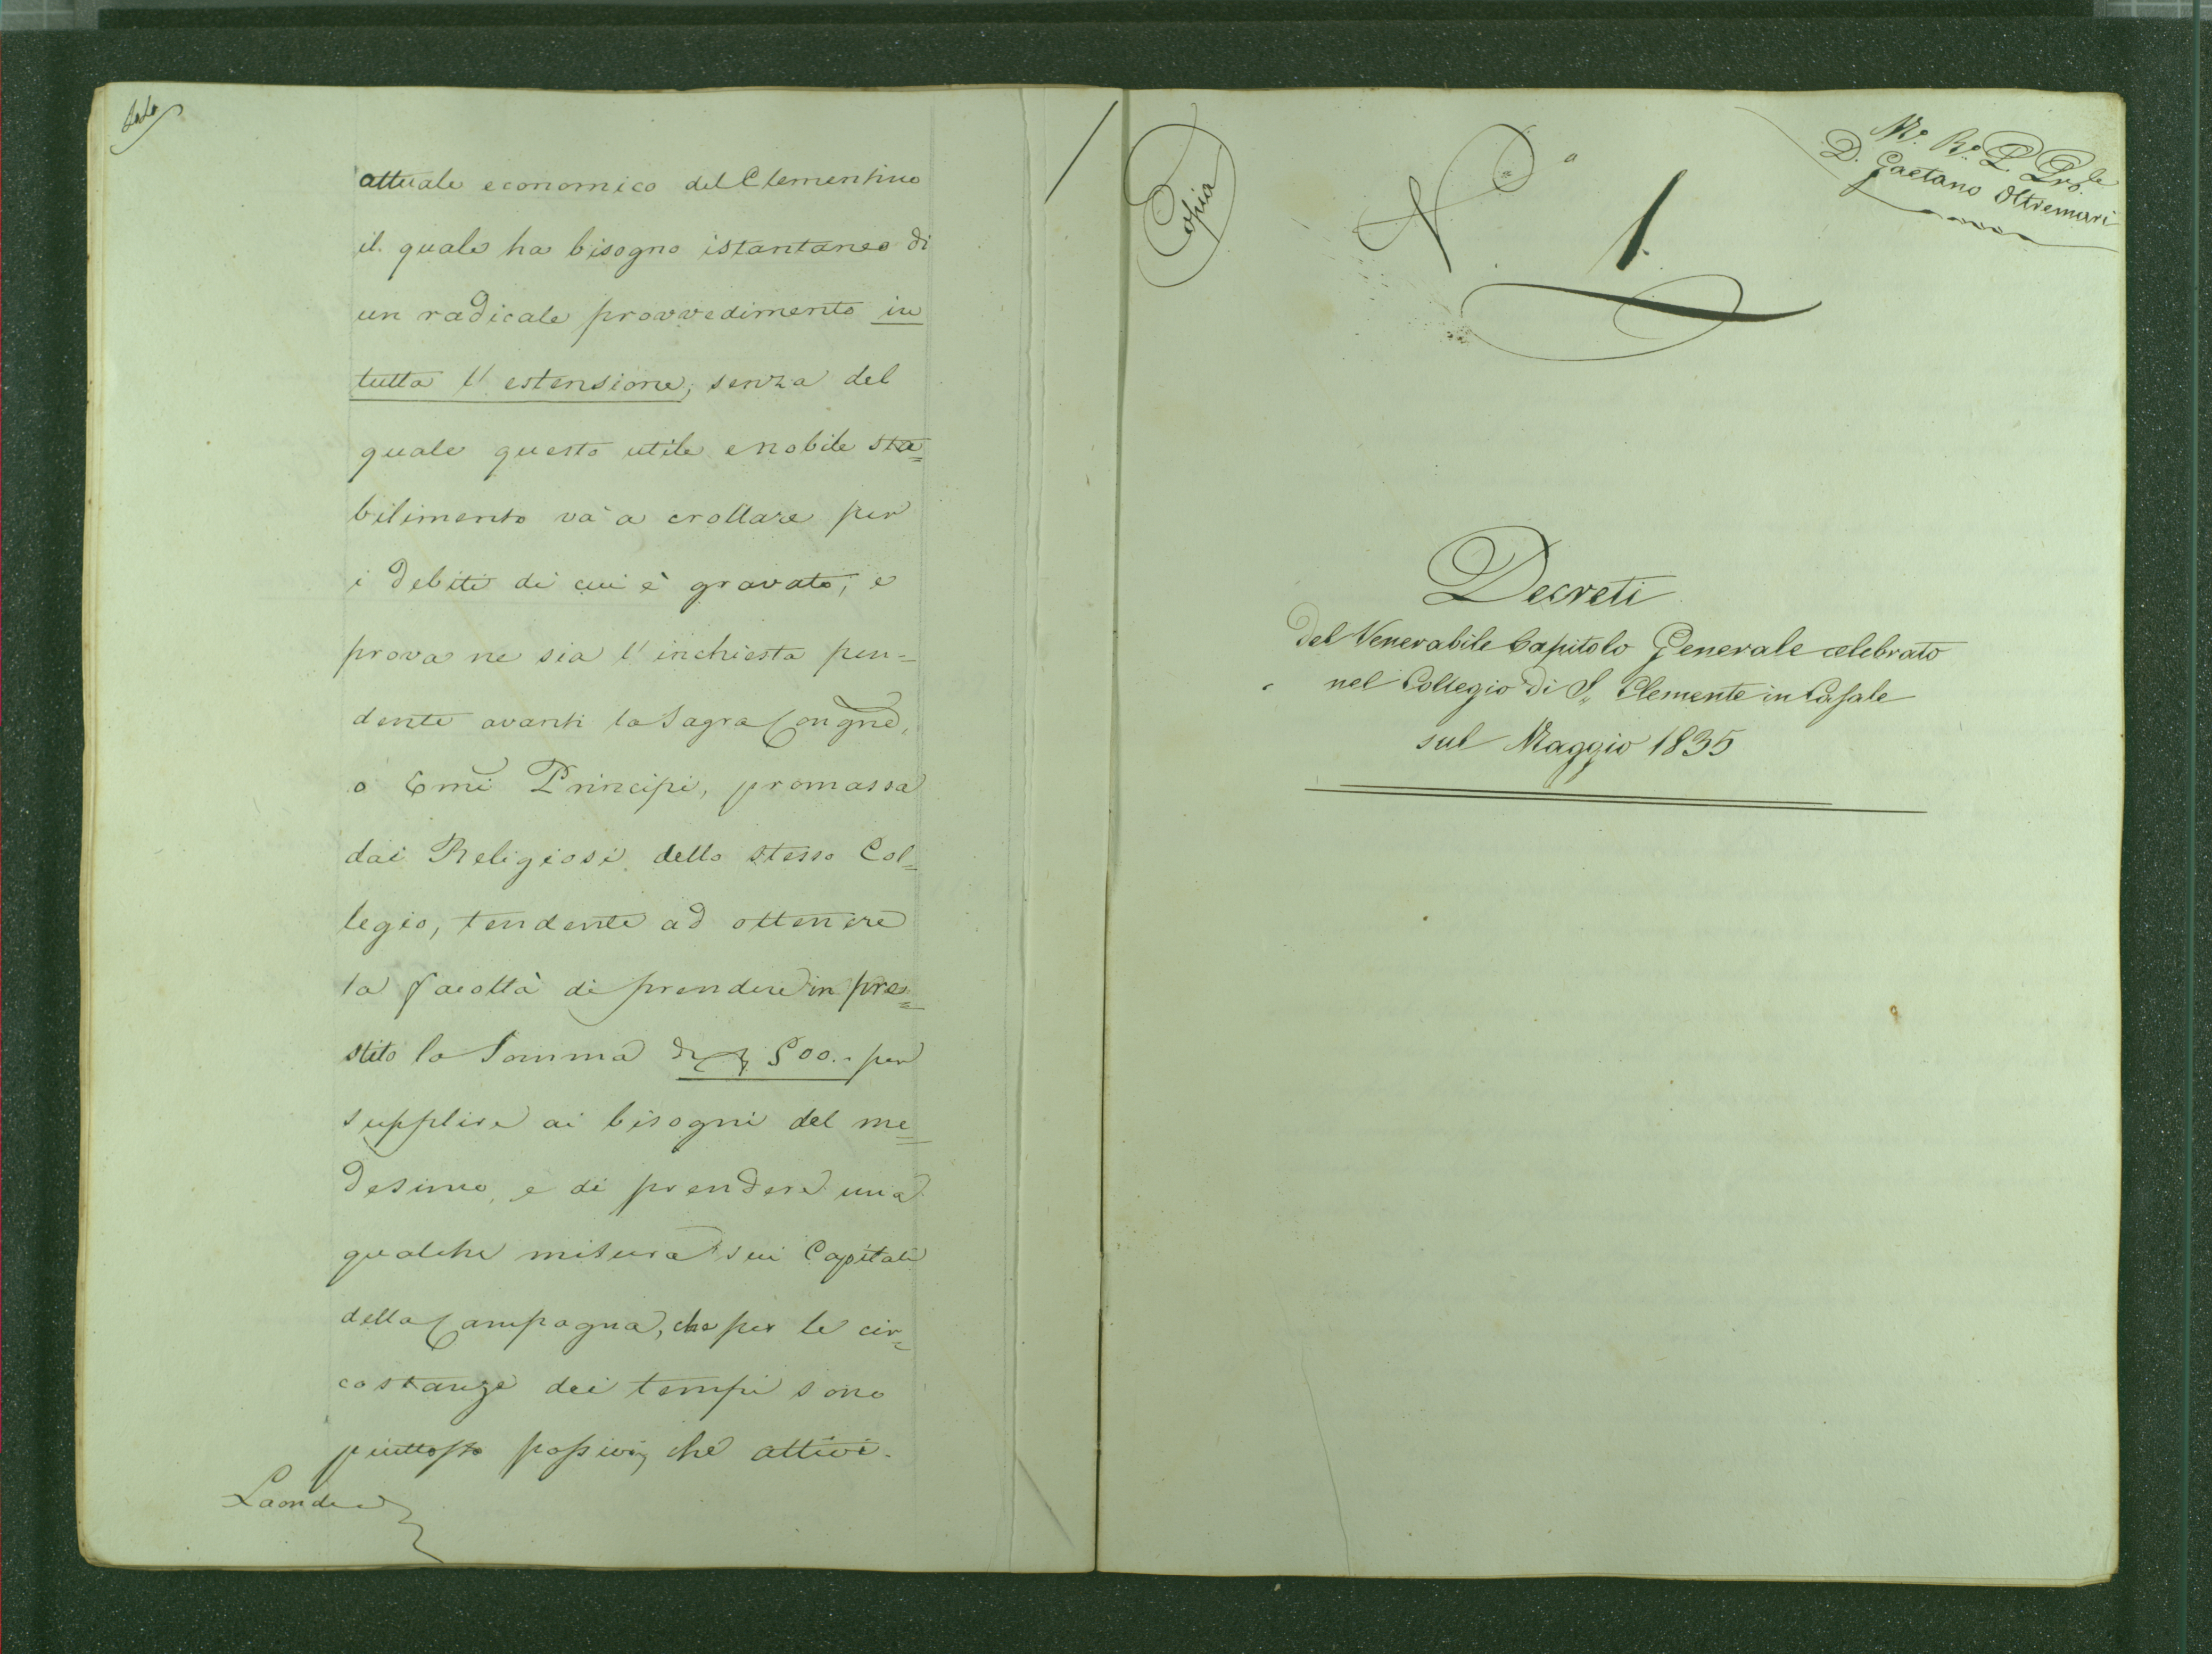 attuale economico del Clementino
il quale ha bisogno istantaneo di
un radicale provvedimento in
tutta l'estensione, senza del
quale questo utile e nobile sta=
bilimento và a crollare per
i debiti di cui è gravato, e
prova ne sia l'inchiesta pen=
dente avanti la Sagra Congne,
o Emi Principi, promassa
dai Religiosi dello stesso Col=
legio, tendente ad ottenere
la facoltà di prendere in pre=
stito la Somma di 500.. per
supplire ai bisogni del me=
desimo, e di prendere una
qualche misura sui Capitali
della Campagna, che per le cir=
costanze dei tempi sono
piuttosto passivi, che attivi.
Laonde
Copia
M.o R.o P. Pro.le
D. Gaetano Oltremari
N.o 1.
Decreti
del Venerabile Capitolo Generale celebrato
nel Collegio di S. Clemente in Casale
sul Maggio 1835